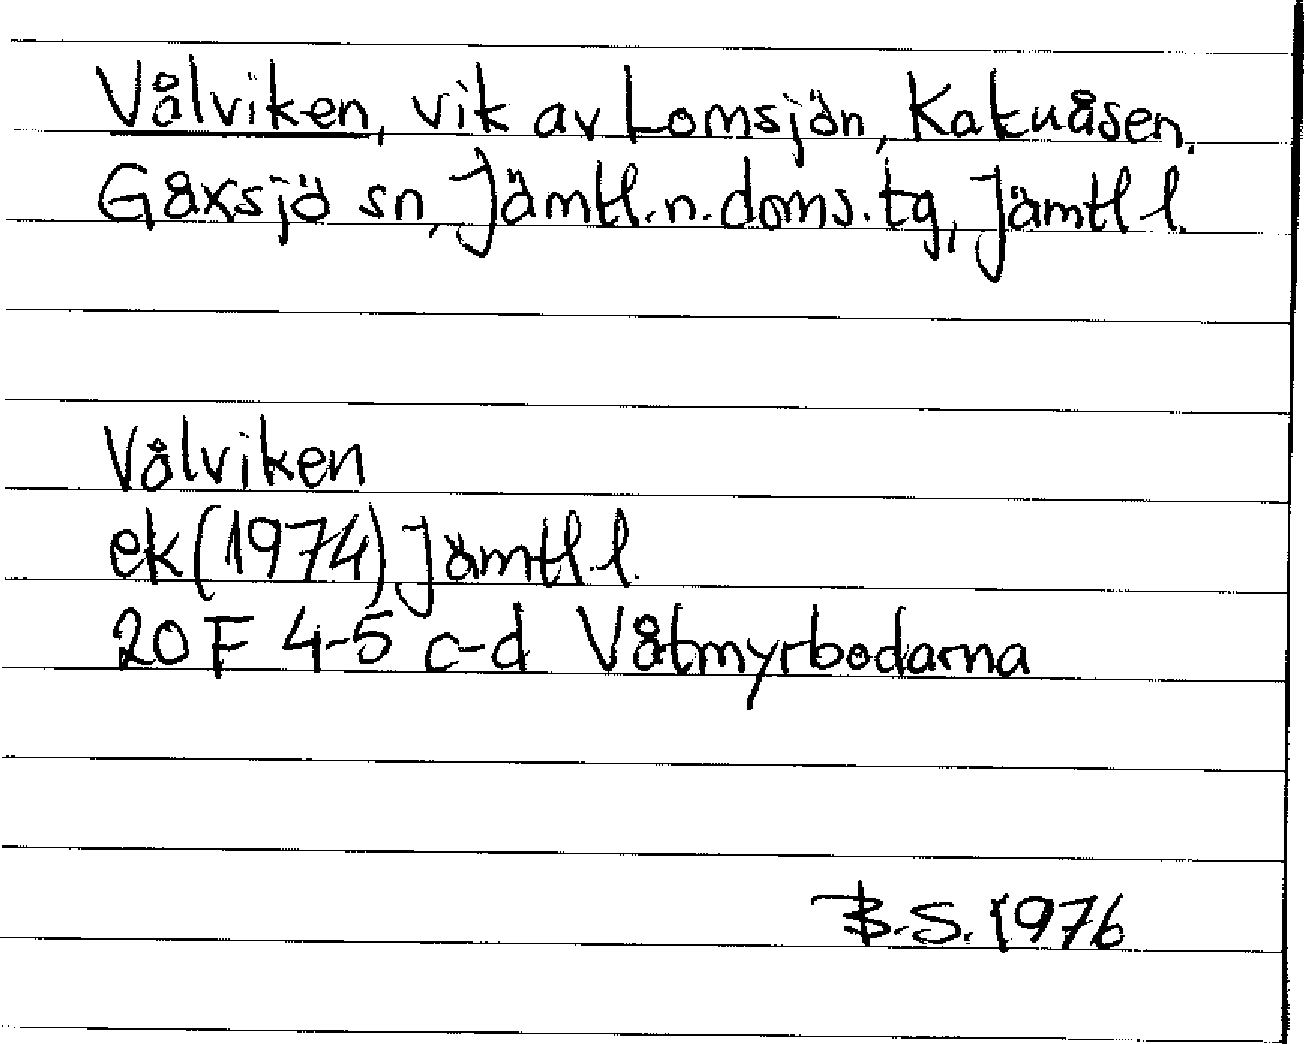 Vålviken, vik av Lomsjön, Kakuåsen,
Gåxsjö sn, Jämtl.n.doms.tg, Jämtl l.
Vålviken
ek (1974) Jämtl.l.
20 F 4-5 c-d Våtmyrbodarna
B.S. 1976